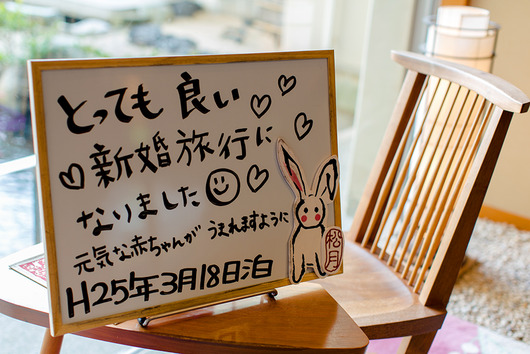 とっても良い
新婚旅行に
なりました
元気な赤ちゃんが うまれますように
H25年3月18日泊
松月